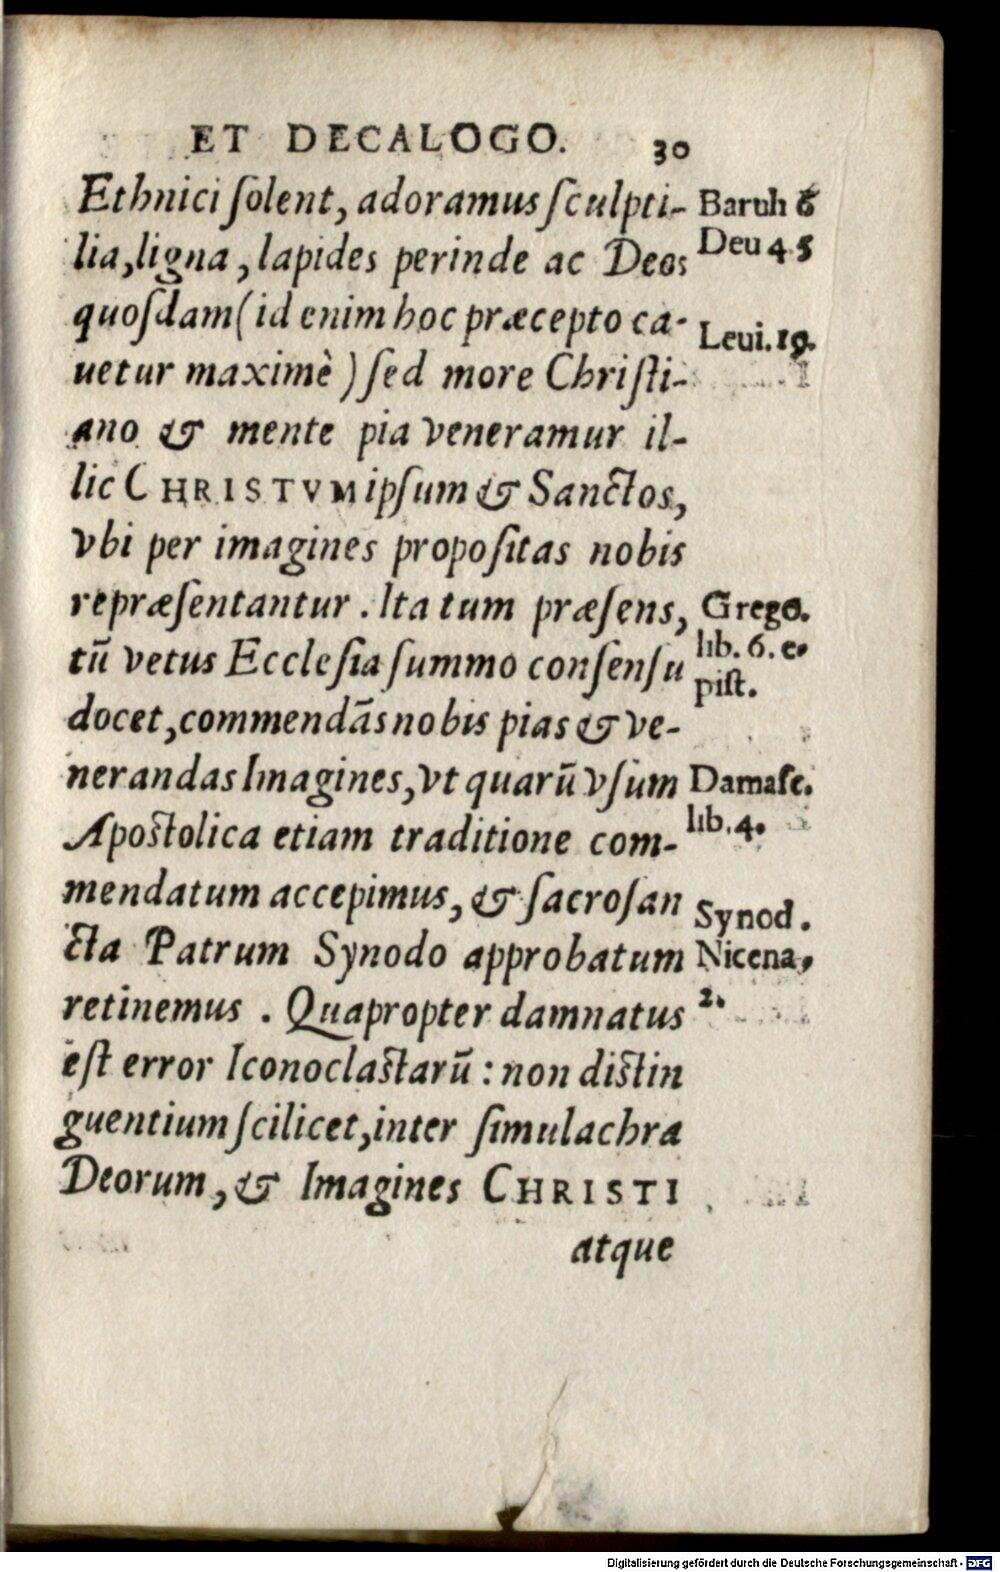 ET DECALOGO. 30
Ethnici ſolent, adoramus ſculpti-
lia, ligna, lapides perinde ac Deos
quoſdam (id enim hoc præcepto ca-
uetur maximè) ſed more Chriſti-
ano & mente pia veneramur il-
lic CHRISTVM ipſum & Sanctos,
vbi per imagines propoſitas nobis
repræſentantur. Ita tum præſens,
tū vetus Eccleſia ſummo conſenſu
docet, commendãs nobis pias & ve-
nerandas Imagines, vt quarū vſum
Apoſtolica etiam traditione com-
mendatum accepimus, & ſacroſan
cta Patrum Synodo approbatum
retinemus. Quapropter damnatus
eſt error Iconoclaſtarū: non diſtin
guentium ſcilicet, inter ſimulachra
Deorum, & Imagines CHRISTI
atque
Baruh 6
Deu 4 5
Leui. 19.
Grego.
lib. 6. e-
piſt.
Damaſc.
lib. 4.
Synod.
Nicena,
2.
Digitalisierung gefördert durch die Deutsche Forschungsgemeinschaft - DFG